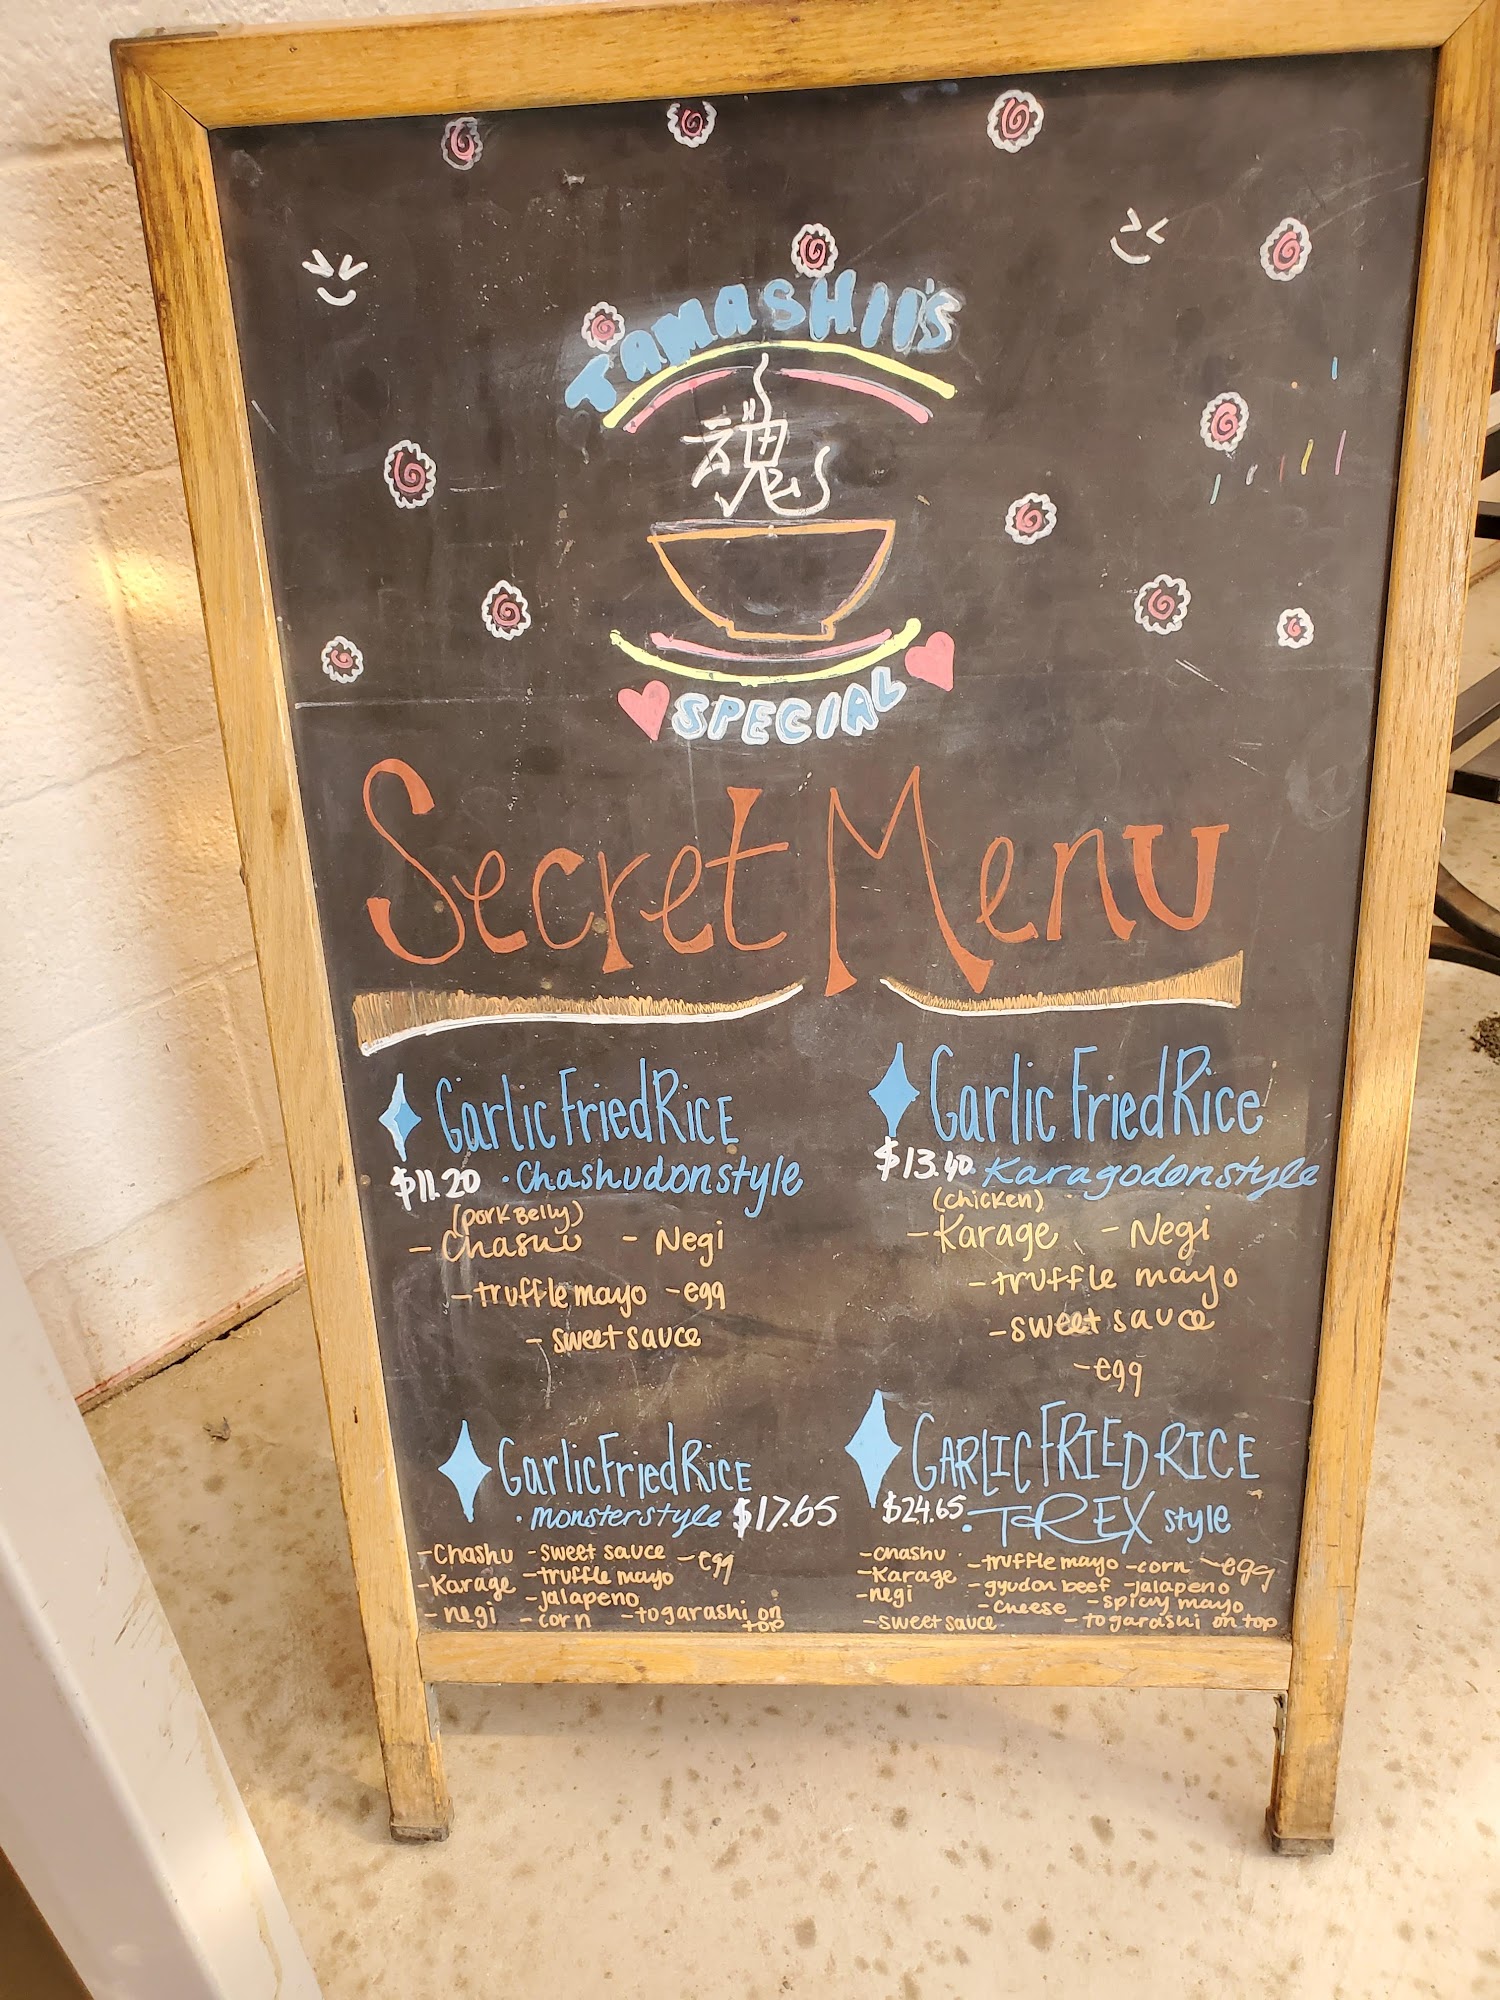 TAMASHII'S
魂
SPECIAL
Secret Menu
Garlic Fried Rice
$11.20 · Chashudon style
(pork Belly)
- Chashu - Negi
- truffle mayo - egg
- sweet sauce
Garlic Fried Rice
$13.40 · Karagodon style
(chicken)
- Karage - Negi
- truffle mayo
- sweet sauce
- egg
Garlic Fried Rice
· monster style $17.65
- Chashu - sweet sauce - egg
- Karage - truffle mayo
- jalapeno
- negi - corn - togarashi on
top
GARLIC FRIED RICE
$24.65 · T-REX style
- chashu - truffle mayo - corn - egg
- Karage - gyudon beef - jalapeno
- negi - cheese - spicy mayo
- sweet sauce - togarashi on top